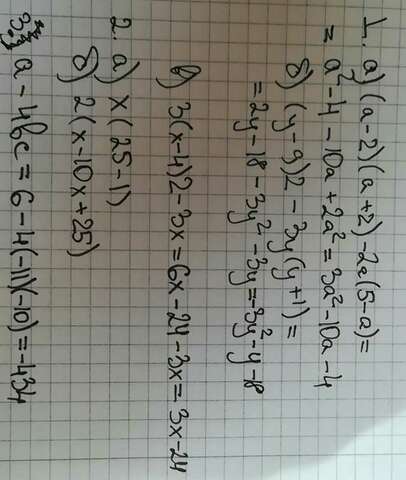 1. а) (a-2)(a+2)-2a(5-a)=
= a²-4-10a+2a²=3a²-10a-4
б) (y-9)2-3y(y+1)=
= 2y-18-3y²-3y=-3y²-y-18
в) 3(x-4)2-3x=6x-24-3x=3x-24
2. а) x(25-1)
б) 2(x-10x+25)
a-4bc=6-4(-11)(-10)=-434